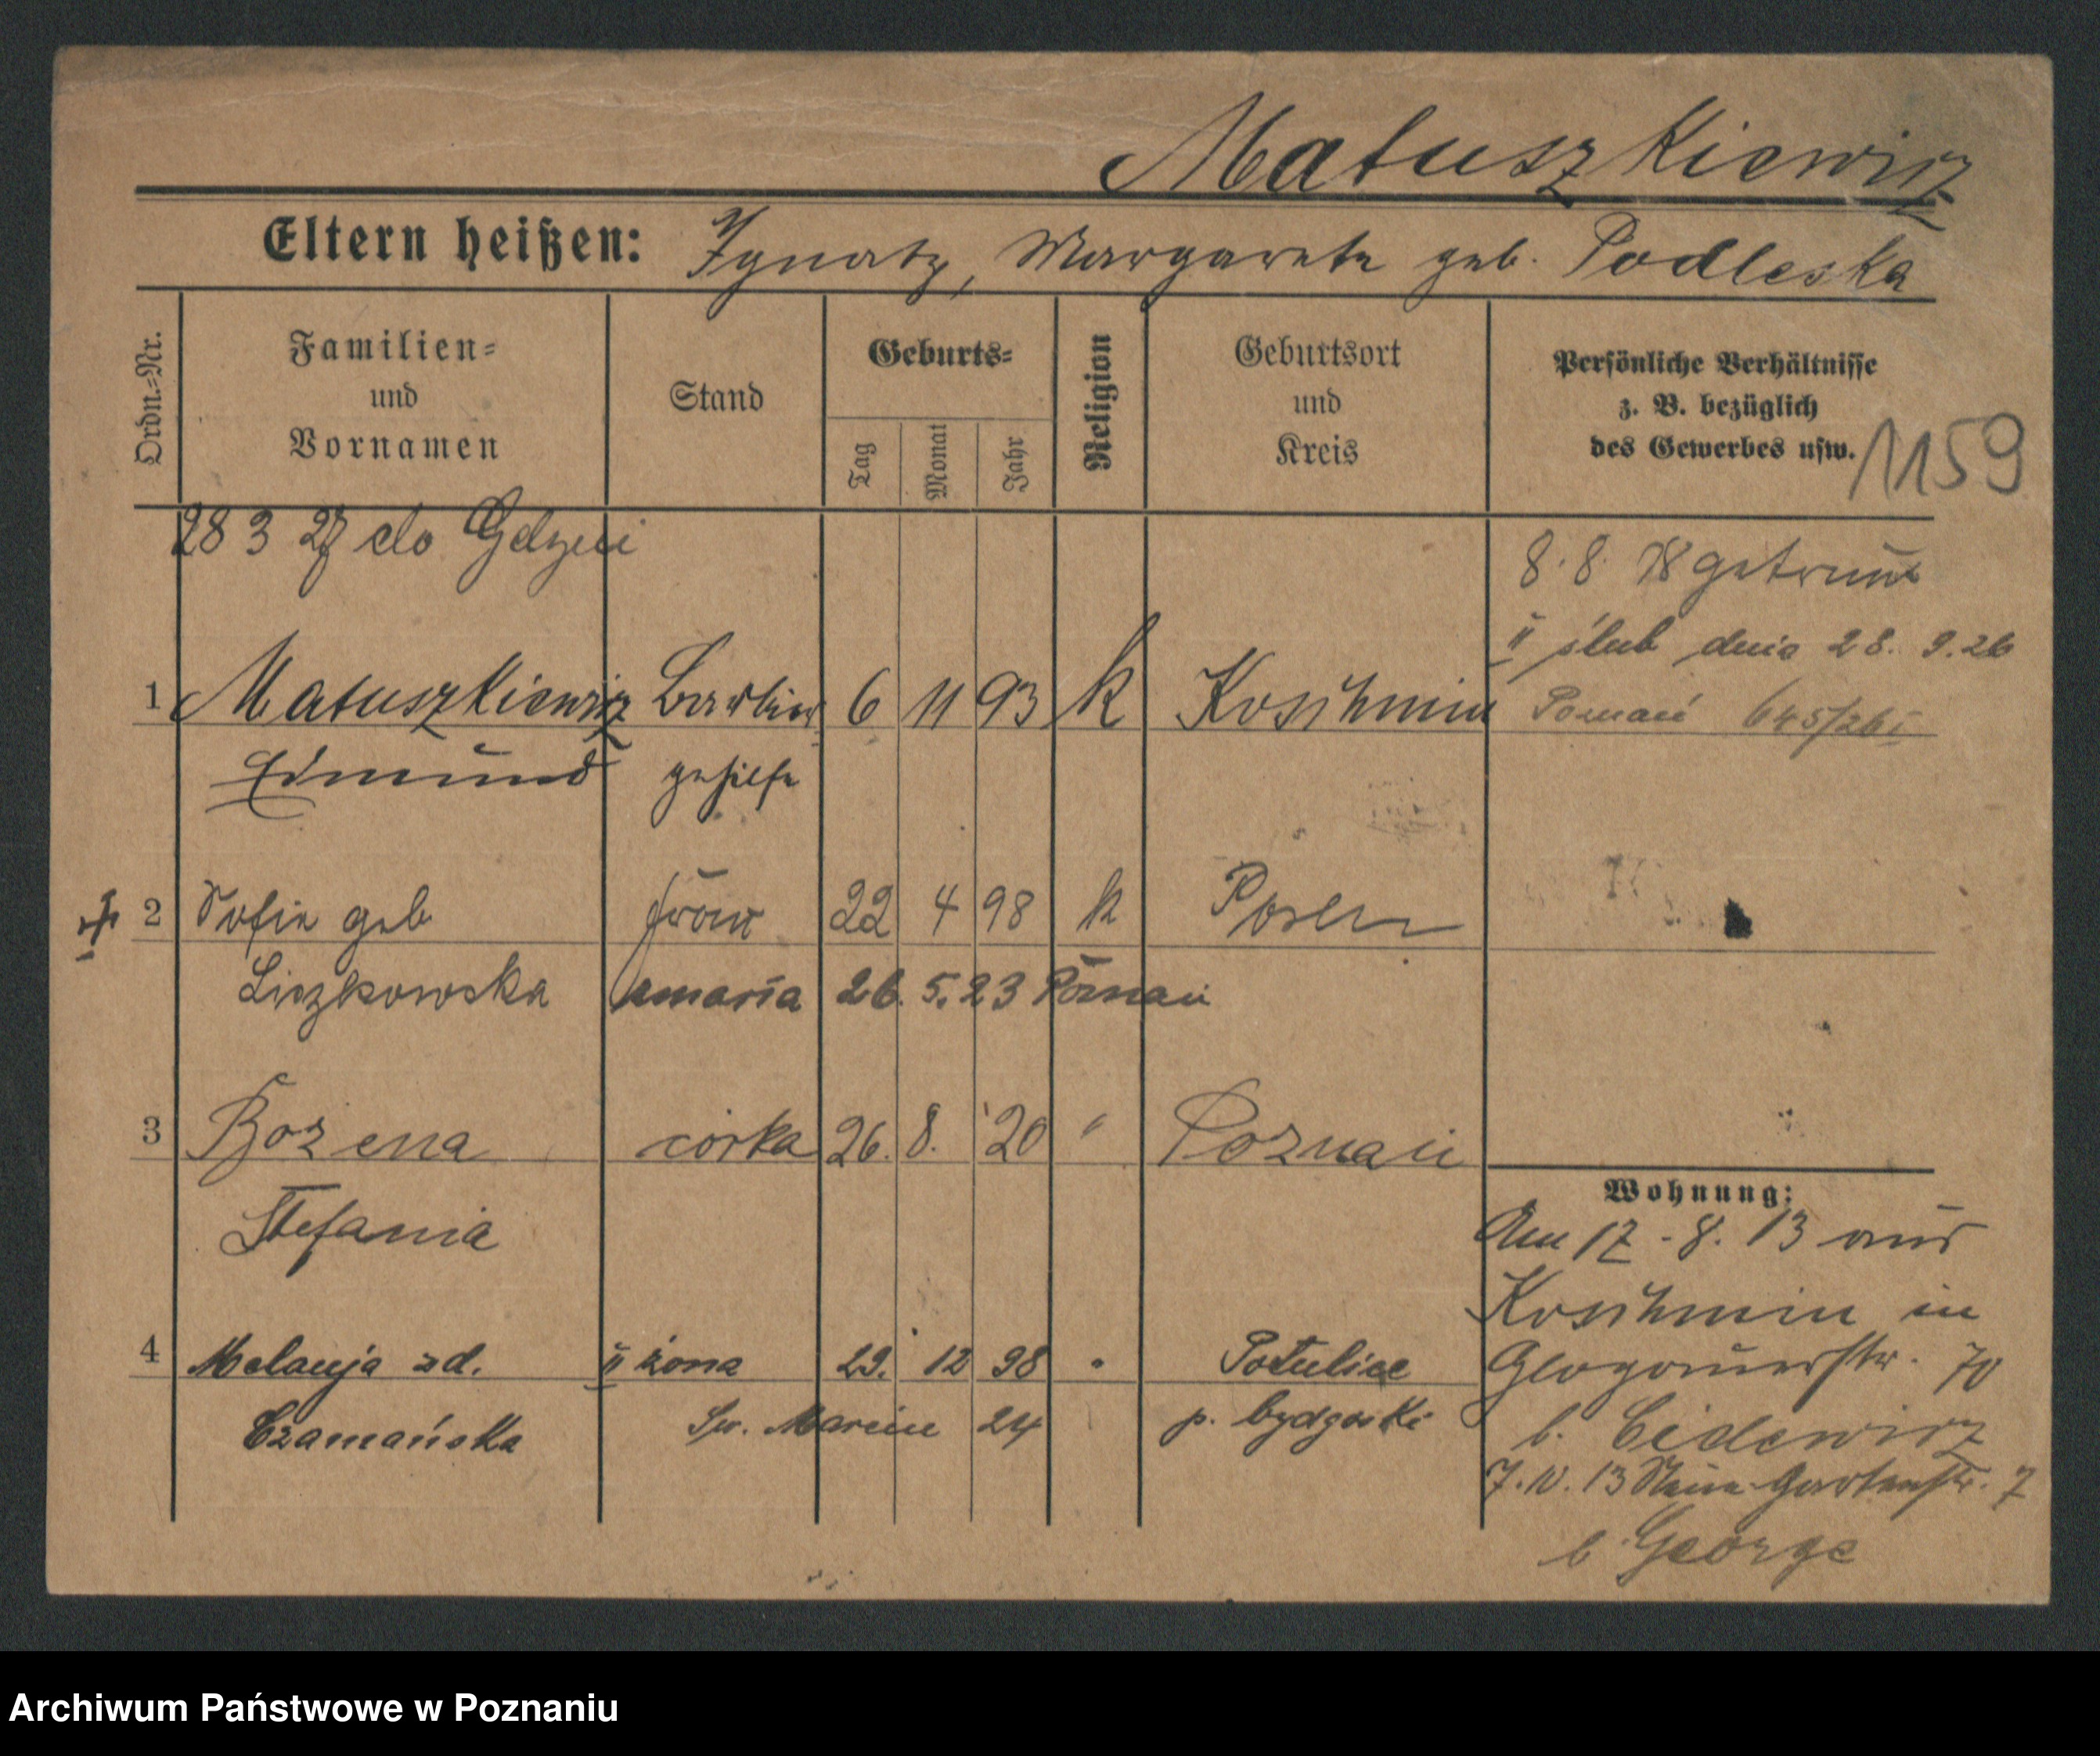 Matuszkiewicz
Eltern heißen: Ignatz, Margarete geb. Podleska
Ordn.-Nr.
Familien-
und
Vornamen
Stand
Geburts-
Tag
Monat
Jahr
Religion
Geburtsort
und
Kreis
Persönliche Verhältnisse
z. B. bezüglich
des Gewerbes usw.
1159
28 3 27 do Gdyni
8. 8. 18 getraut
II ślub dnia 28. 9. 26
Poznań 645/26 I
1 Matuszkiewicz Barbier 6 11 93 k Koschmin
Edmund gehilfe
2 Sofie geb Frau 22 4 98 k Posen
Liszkowska zmarła 26. 5. 23 Poznań
3 Bożena córka 26. 8. 20 " Poznań
Stefania
4 Melanja zd. II żona 29. 12 98 " Potulice
Czamańska Św. Marcin 24 p. bydgoski
Wohnung:
Am 17. 8. 13 aus
Koschmin in
Glogauerstr. 70
b. Cidewicz
7. 10. 13 Gartenstr. 7
b George
Archiwum Państwowe w Poznaniu